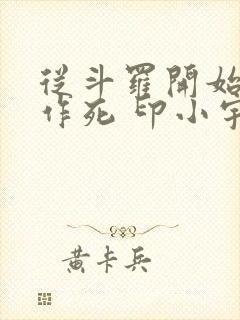 從斗羅開始
作死 印小宇
黃卡兵